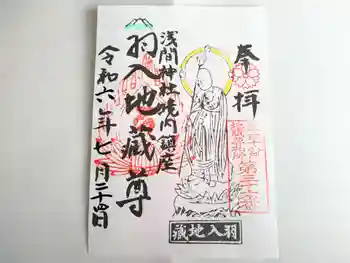 奉拝
浅間神社境内鎮座
羽入地蔵尊
令和六年七月二十四日
羽入地蔵